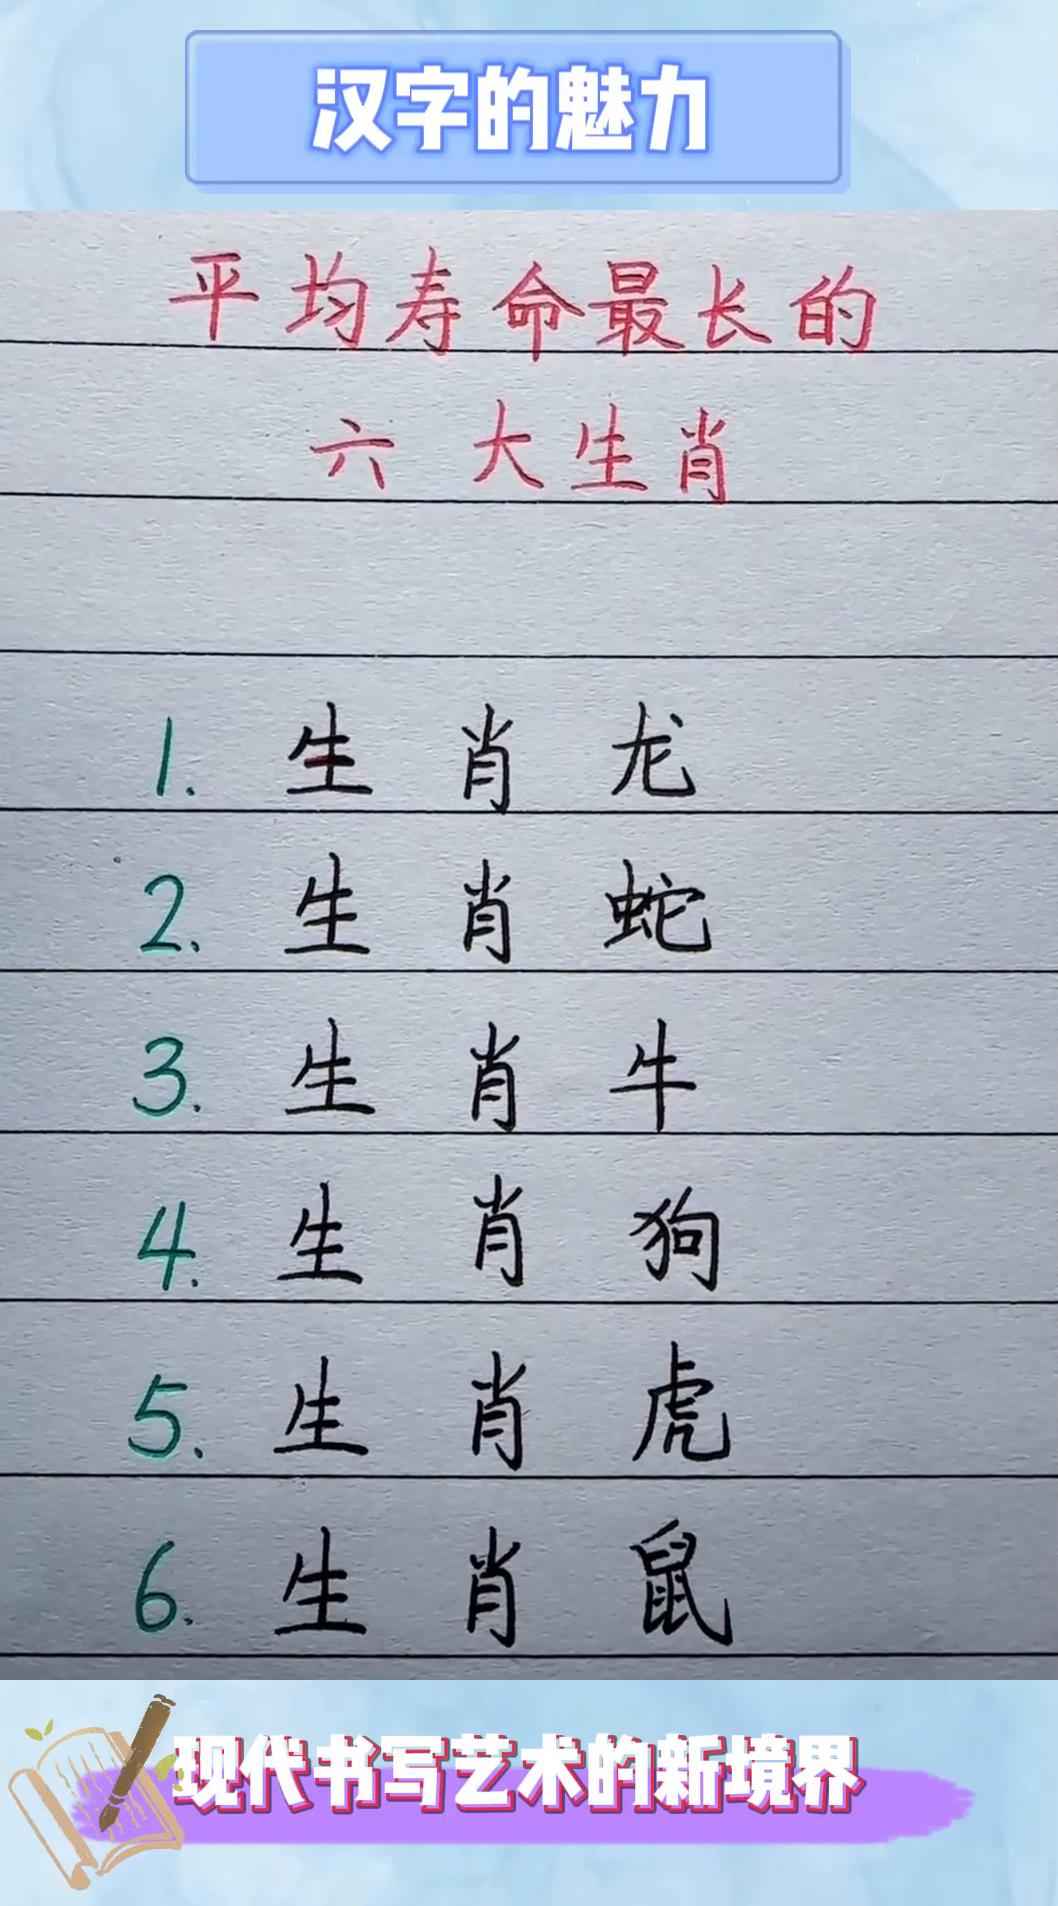 汉字的魅力
平均寿命最长的
六大生肖
1. 生肖龙
2. 生肖蛇
3. 生肖牛
4. 生肖狗
5. 生肖虎
6. 生肖鼠
现代书写艺术的新境界